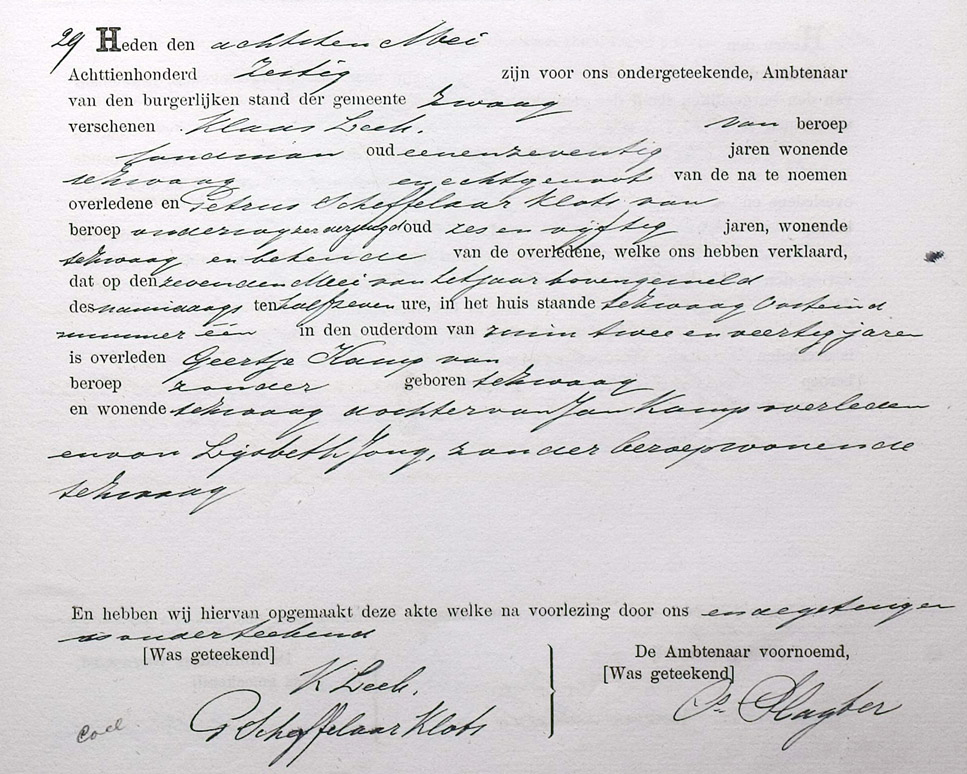 29 Heden den achtsten Mei
Achttienhonderd Zestig zijn voor ons ondergeteekende, Ambtenaar
van den burgerlijken stand der gemeente Zwaag
verschenen Klaas Leek. van beroep
landman oud eenenzeventig jaren wonende
te Zwaag en echtgenoot van de na te noemen
overledene en Petrus Scheffelaar Klots van
beroep onderwijzer oud zes en vijftig jaren, wonende
te Zwaag en bekende van de overledene, welke ons hebben verklaard,
dat op den zevenden Mei van het jaar bovengemeld
des namiddags ten half zeven ure, in het huis staande te Zwaag Oosteind
nummer één in den ouderdom van ruim twee en veertig jaren
is overleden Geertje Kamp van
beroep zonder geboren te Zwaag
en wonende te Zwaag dochter van Jan Kamp overleden
en van Lijsbeth Jong, zonder beroep wonende
te Zwaag
En hebben wij hiervan opgemaakt deze akte welke na voorlezing door ons en de getuigen
is onderteekend
[Was geteekend] De Ambtenaar voornoemd,
[Was geteekend]
K Leek.
P Scheffelaar Klots
P. Slagter